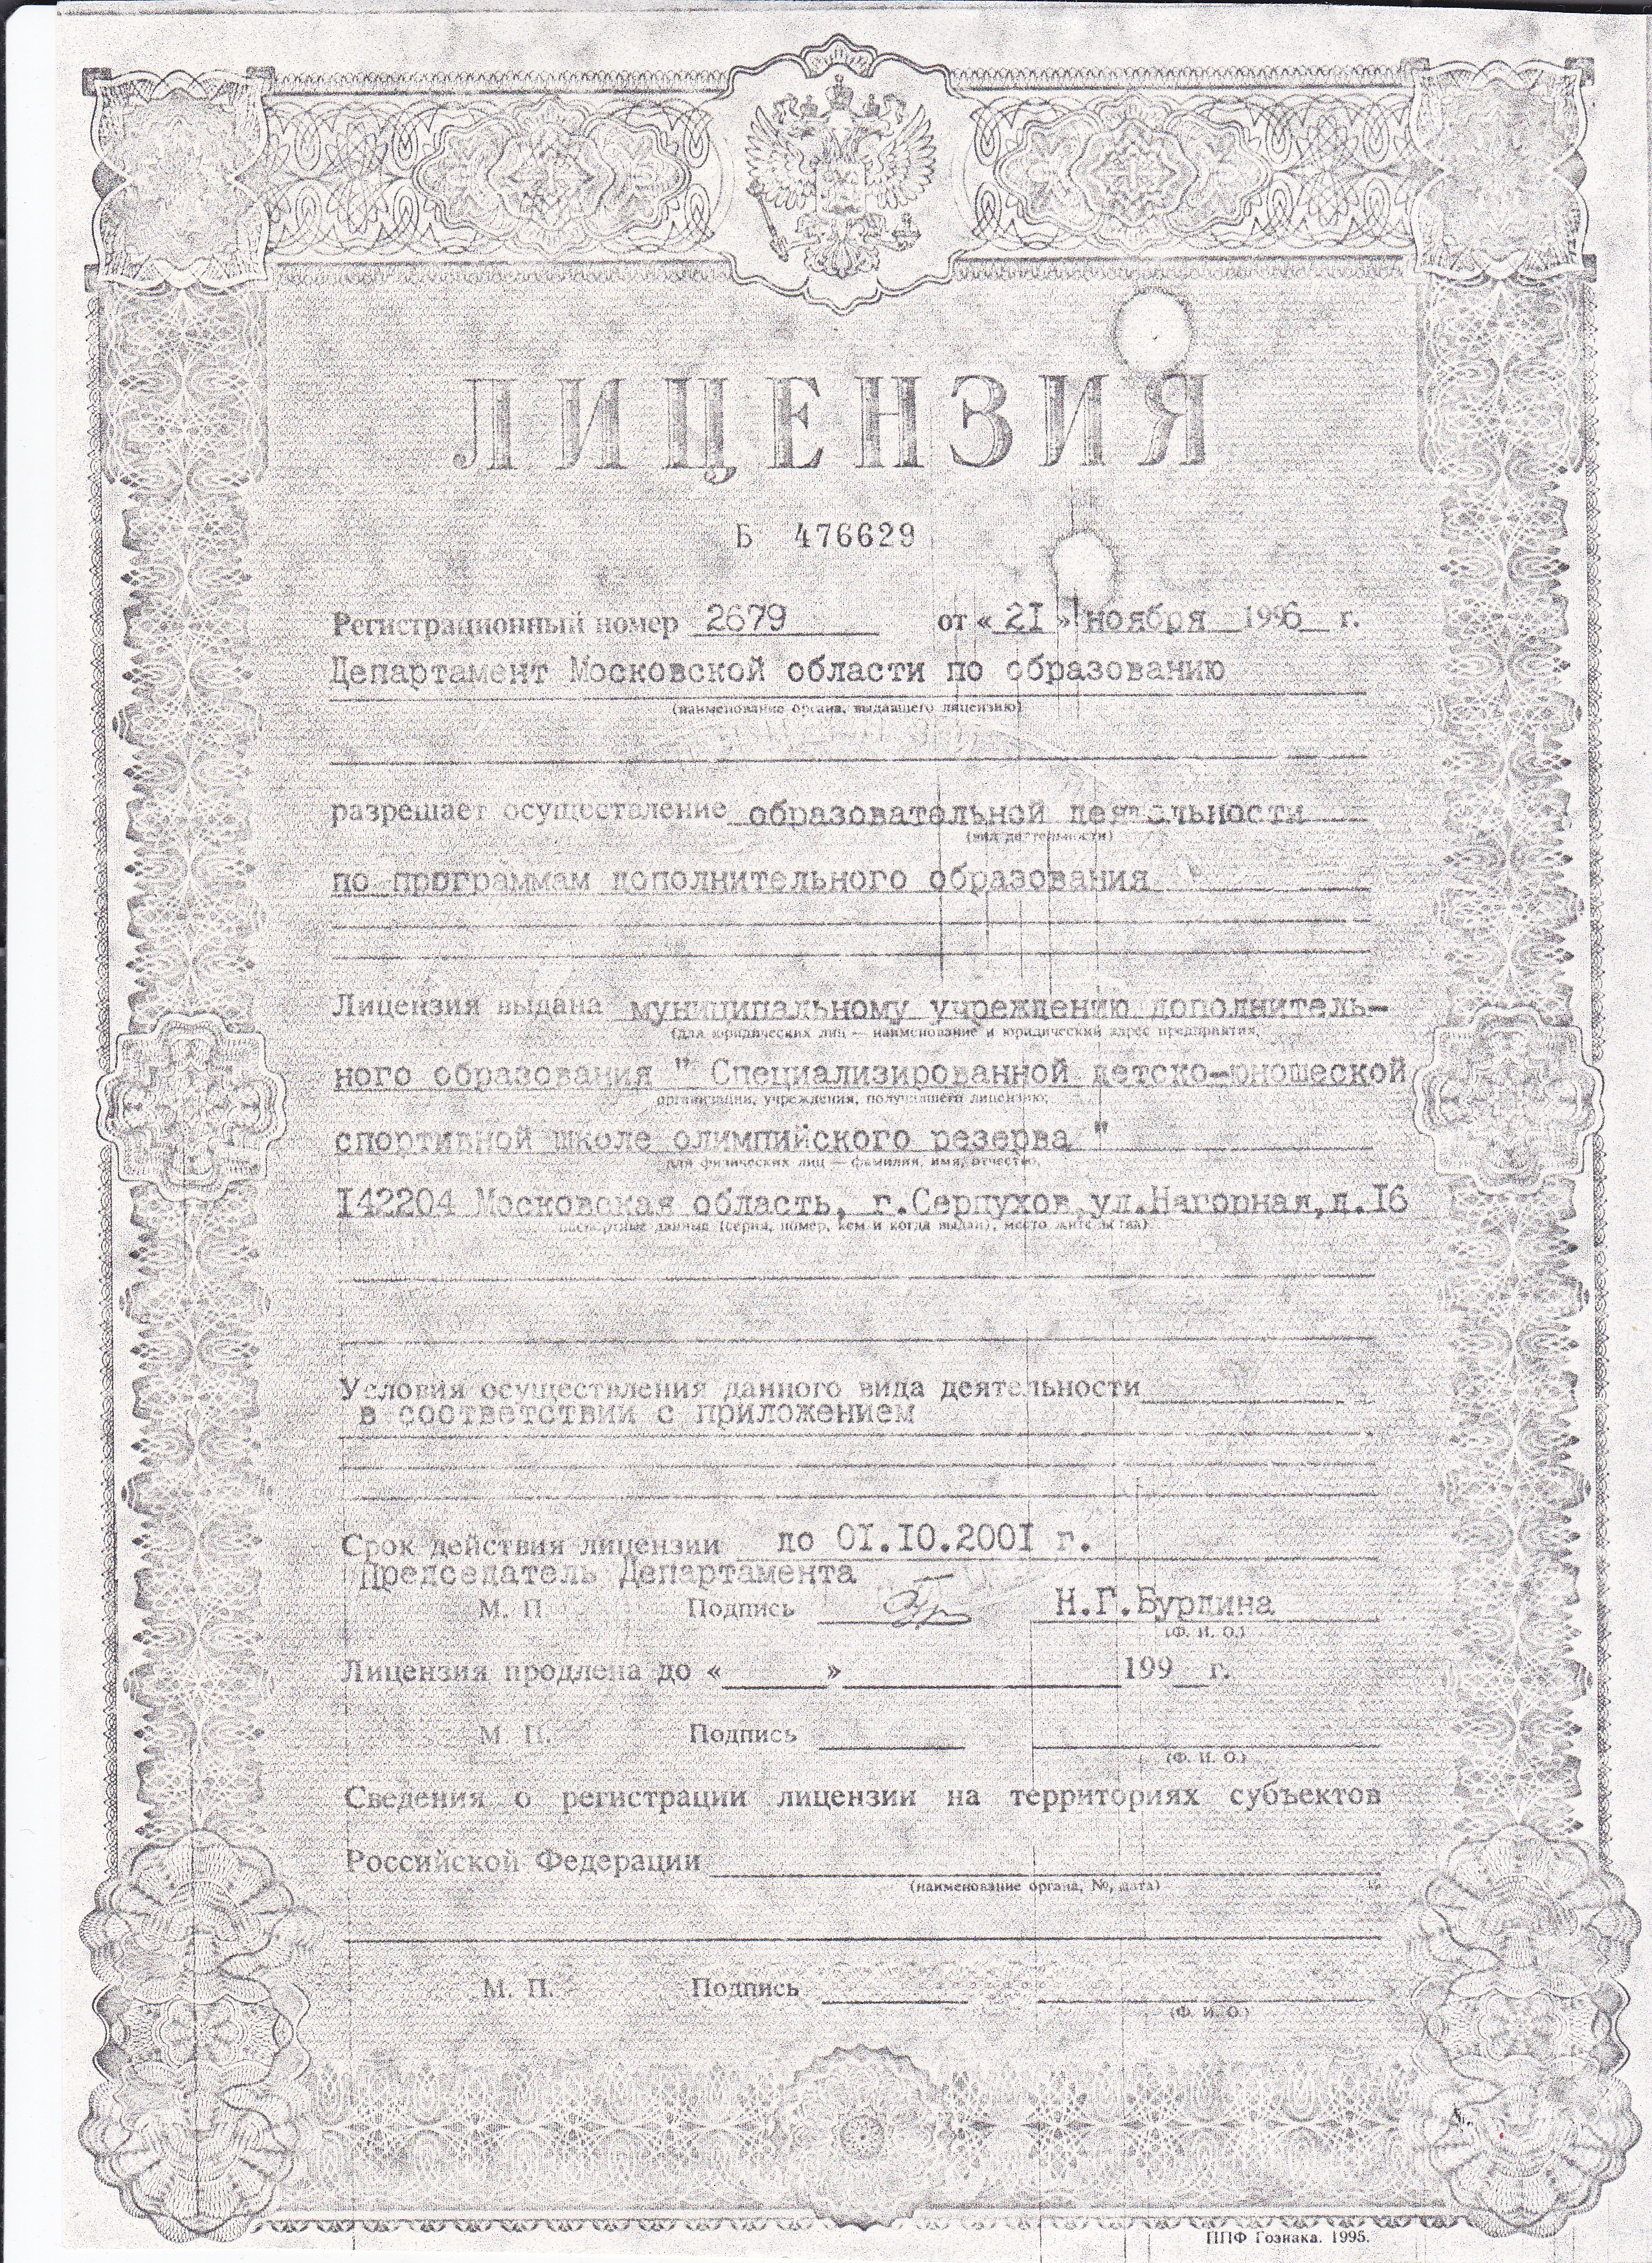 ЛИЦЕНЗИЯ
Б 476629
Регистрационный номер 2679 от «21» ноября 1996 г.
Департамент Московской области по образованию
(наименование органа, выдавшего лицензию)
разрешает осуществление образовательной деятельности
(вид деятельности)
по программам дополнительного образования
Лицензия выдана муниципальному учреждению дополнитель-
(для юридических лиц — наименование и юридический адрес предприятия,
ного образования " Специализированной детско-юношеской
организации, учреждения, получившего лицензию;
спортивной школе олимпийского резерва "
для физических лиц — фамилия, имя, отчество,
142204 Московская область, г.Серпухов,ул.Нагорная,д.16
паспортные данные (серия, номер, кем и когда выдан), место жительства)
Условия осуществления данного вида деятельности
в соответствии с приложением
Срок действия лицензии до 01.10.2001 г.
Председатель Департамента
М. П. Подпись Н.Г.Бурдина
(Ф. И. О.)
Лицензия продлена до « » 199 г.
М. П. Подпись
(Ф. И. О.)
Сведения о регистрации лицензии на территориях субъектов
Российской Федерации
(наименование органа, №, дата)
М. П. Подпись
(Ф. И. О.)
ППФ Гознака. 1995.